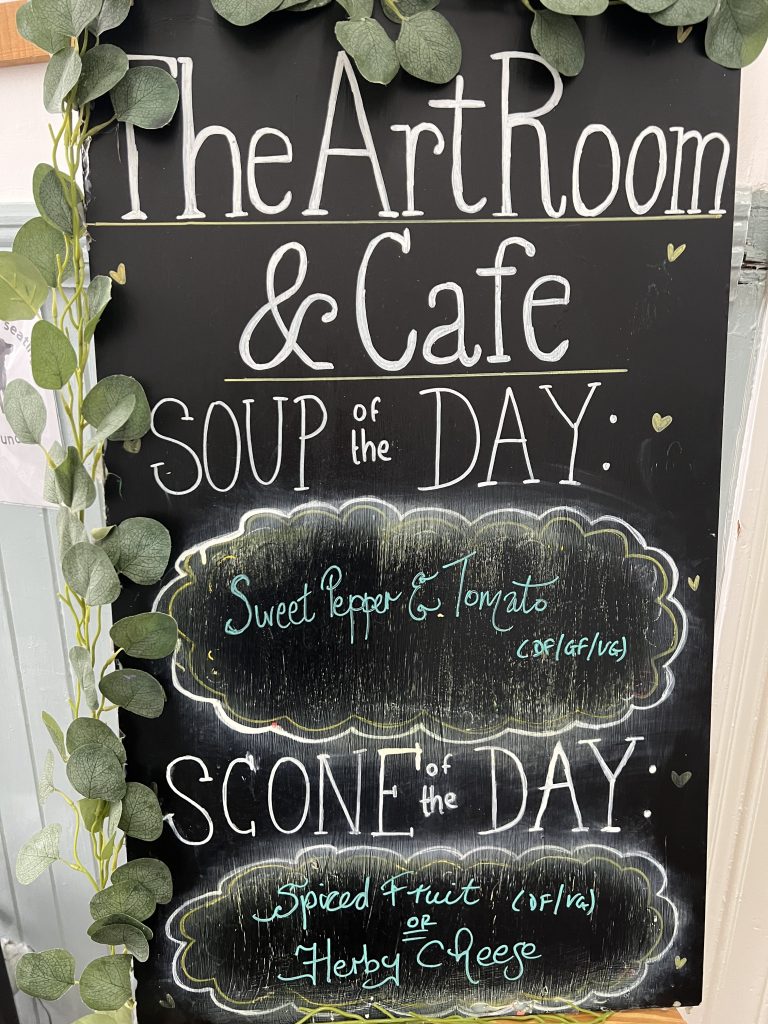 The Art Room
& Cafe
SOUP of the DAY:
Sweet Pepper & Tomato
(DF/GF/VG)
SCONE of the DAY:
Spiced Fruit (DF/VG)
OR
Herby Cheese